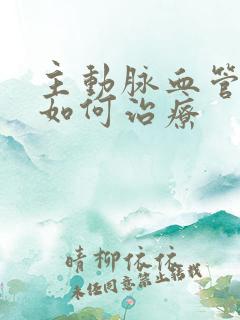 主動脈血管
如何治療
晴柳依依
未经同意禁止转载